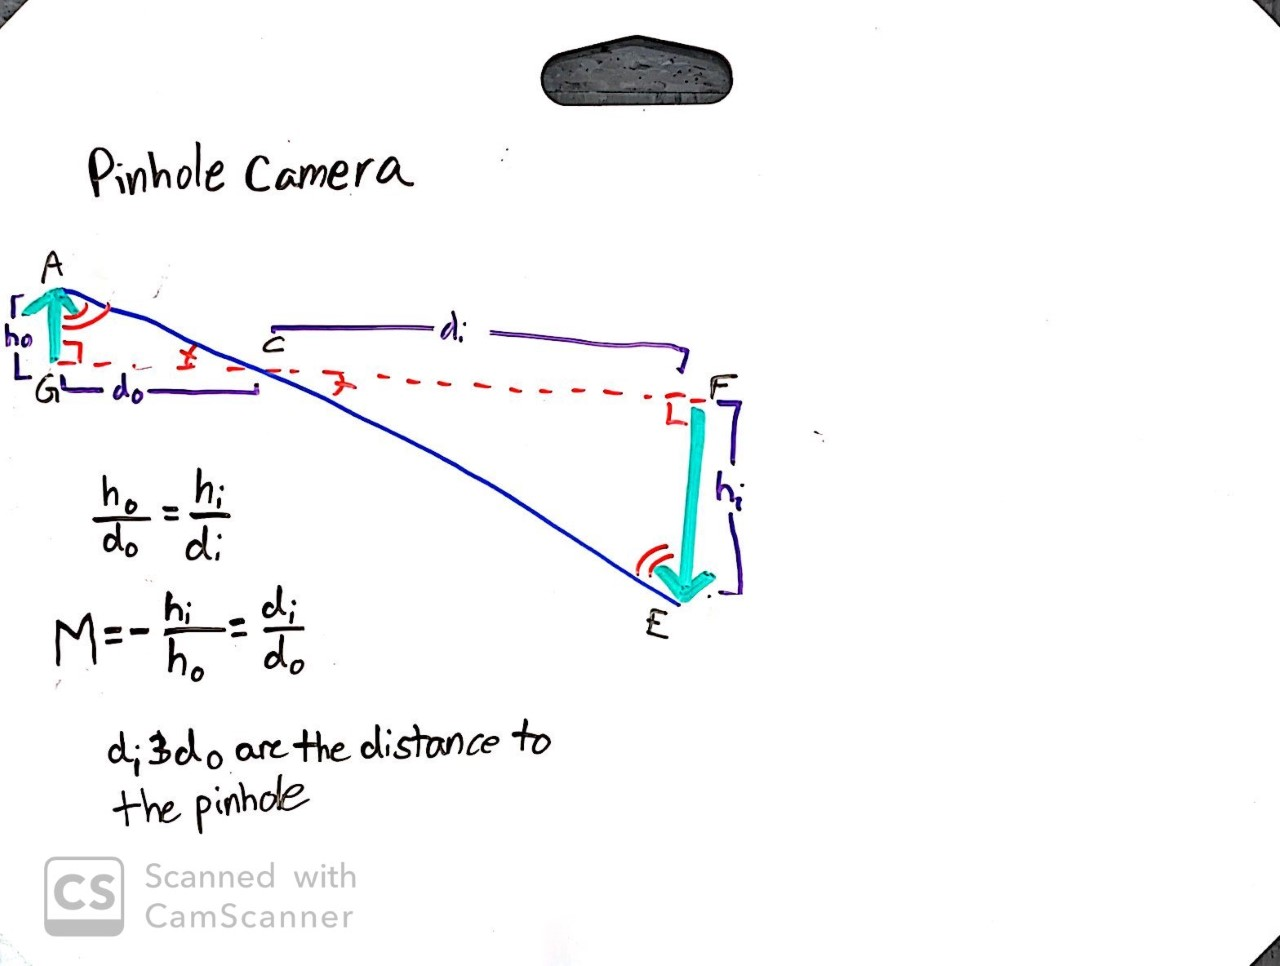 Pinhole Camera
A
ho
G
do
C
di
F
hi
E
ho/do = hi/di
M = - hi/ho = di/do
di & do are the distance to
the pinhole
CS
Scanned with
CamScanner